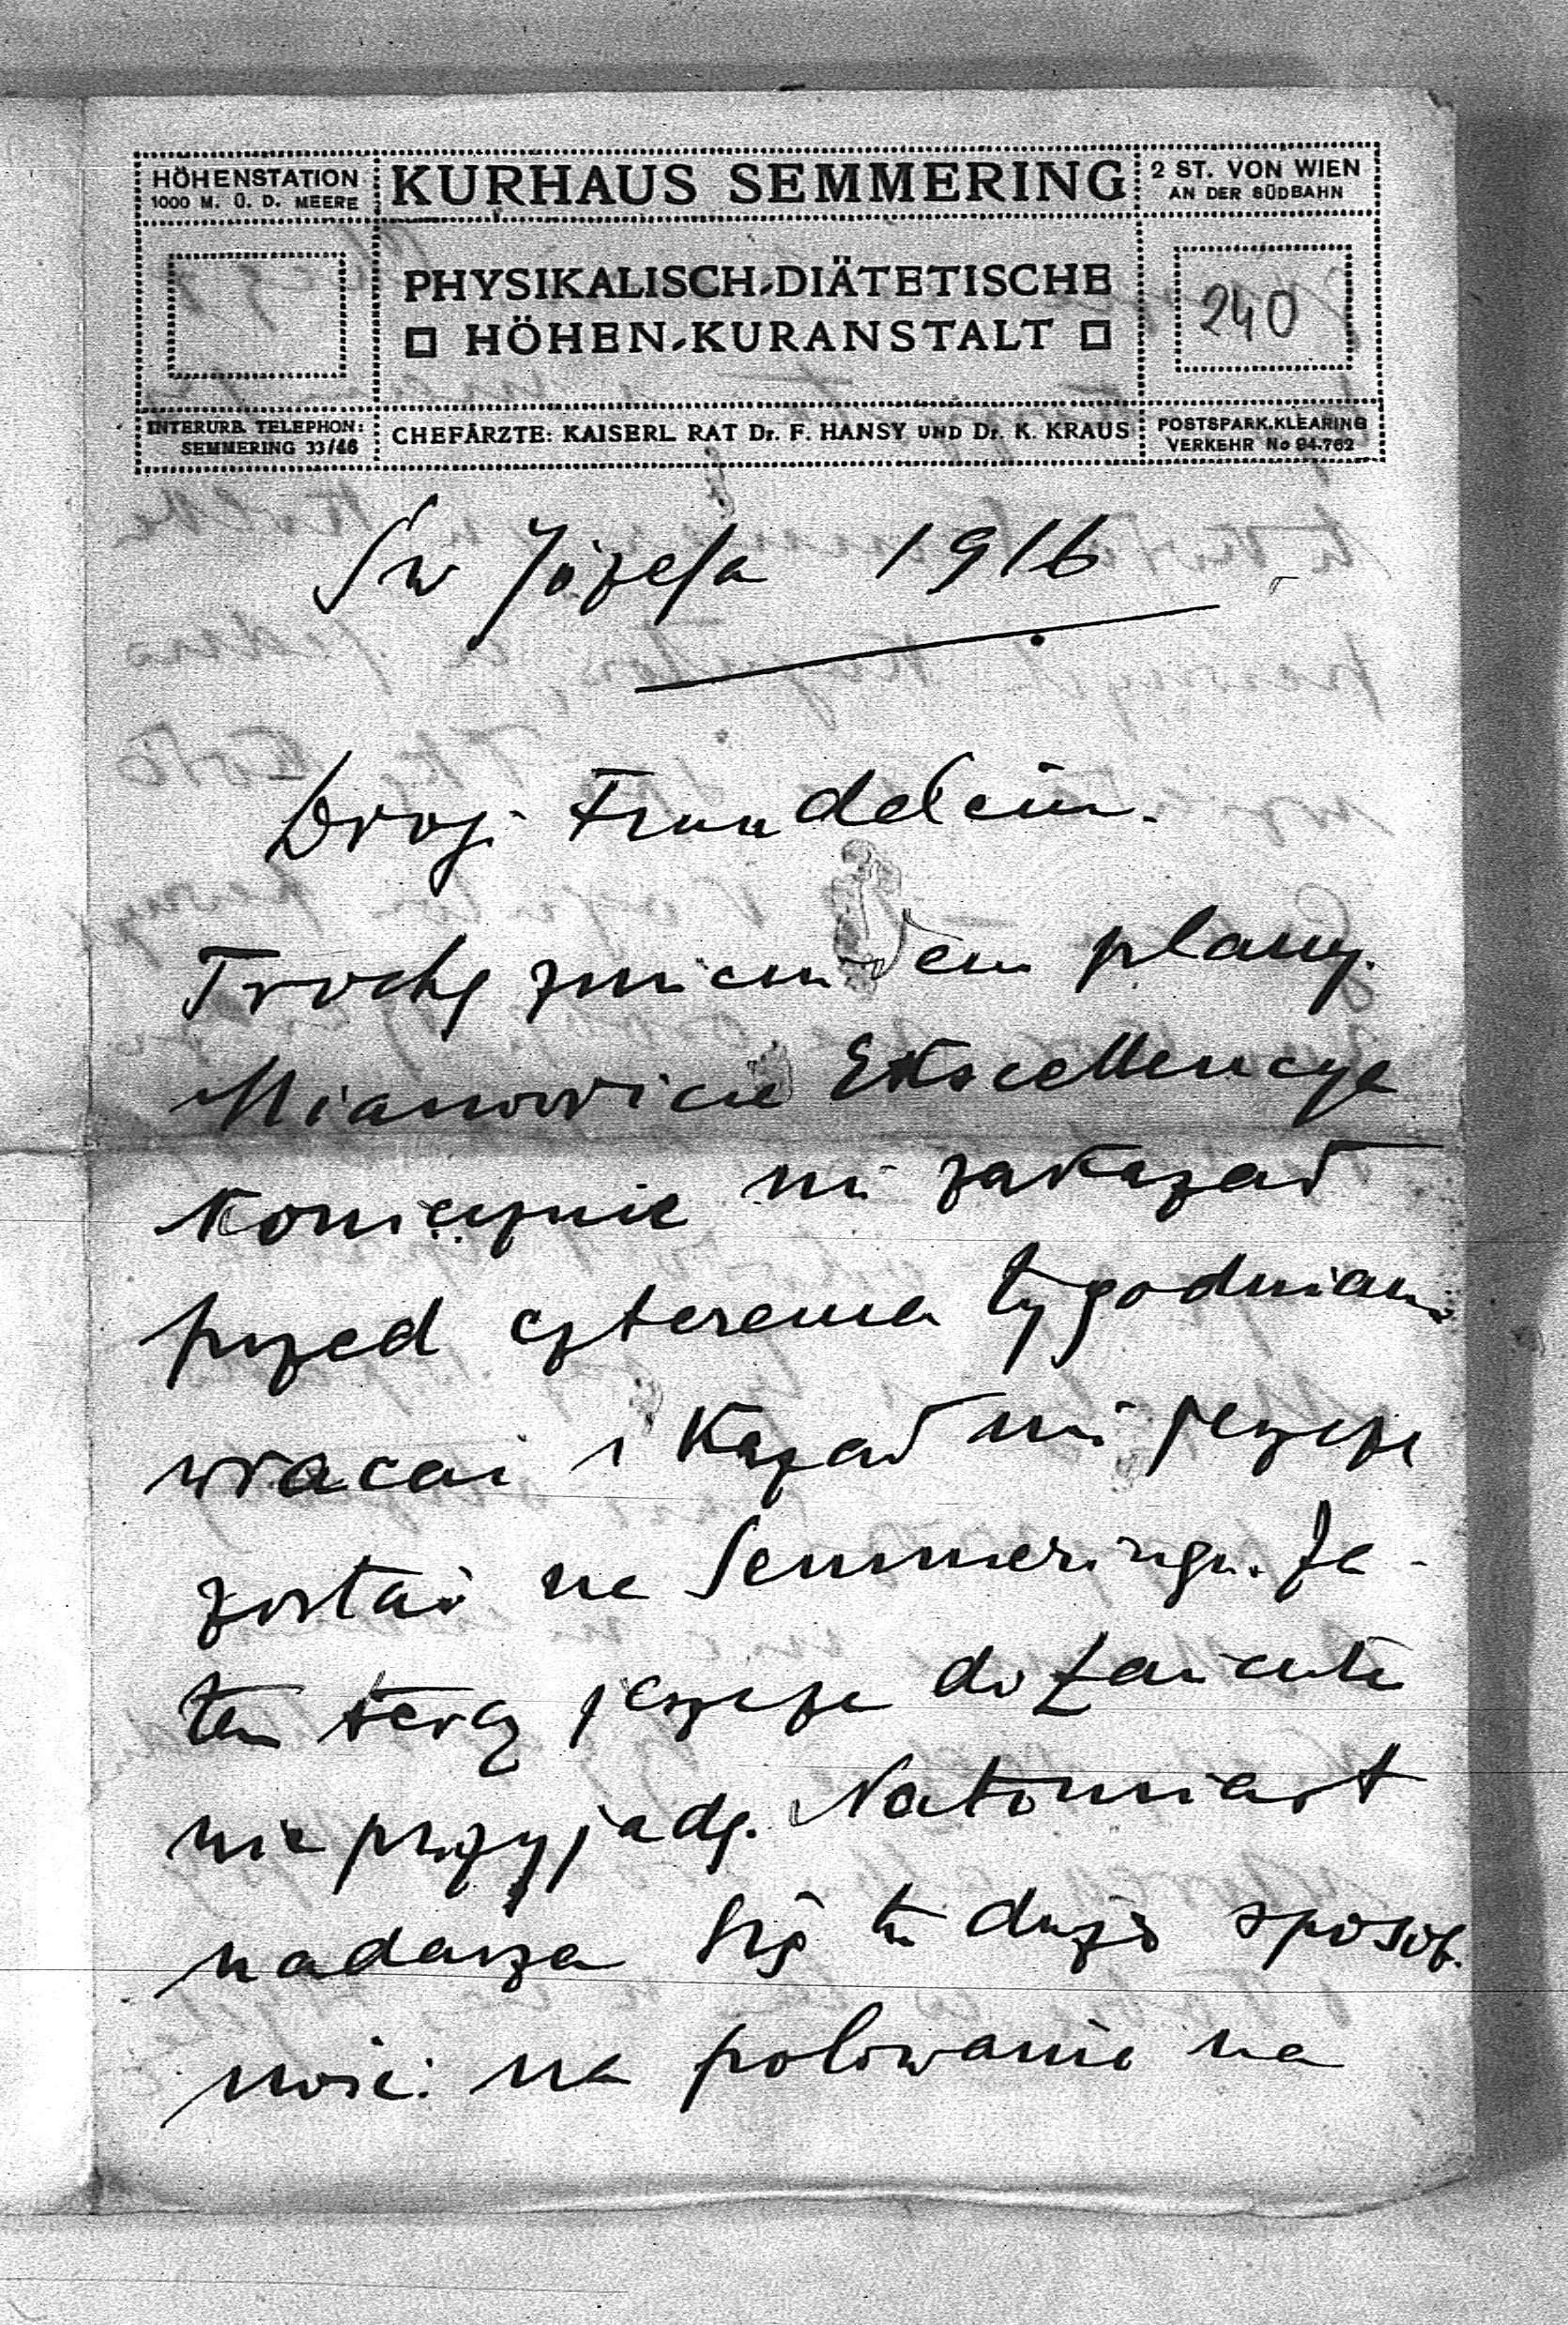 HÖHENSTATION
1000 M. Ü. D. MEERE
KURHAUS SEMMERING
2 ST. VON WIEN
AN DER SÜDBAHN
PHYSIKALISCH-DIÄTETISCHE
HÖHEN-KURANSTALT
240
INTERURB. TELEPHON:
SEMMERING 33/46
CHEFÄRZTE: KAISERL. RAT Dr. F. HANSY UND Dr. K. KRAUS
POSTSPARK.KLEARING
VERKEHR No 94.762
Św Józefa 1916
Drogi
Trochę zmieniłem plany.
Mianowicie Ekscellencya
koniecznie mi zakazał
przed czterema tygodniami
wracać i kazał mi jeszcze
zostać na Semmeringu. Ja
tu teraz jeszcze do Łańcuta
nie przyjadę. Natomiast
nadarza się tu dużo sposob-
ności na polowanie na